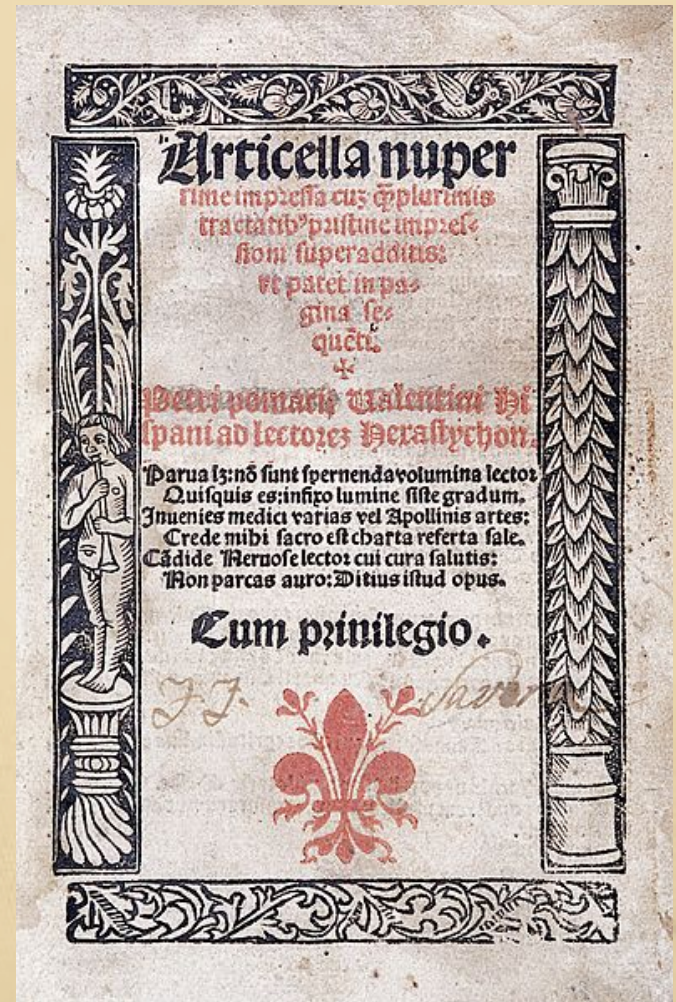 Articella nuper
rime impressa cuz q̃plurimis
tractatibꝰ pristine impres⸗
sioni superadditis:
vt patet in pa⸗
gina se⸗
quẽti.
Petri pomarij Valentini Hi
spani ad lectores Hexastychon.
Parua lꝫ: nõ sunt spernenda volumina lector
Quisquis es: infixo lumine siste gradum.
Inuenies medici varias vel Apollinis artes:
Crede mihi sacro est charta referta sale.
Cãdide Neruose lector cui cura salutis:
Non parcas auro: Ditius istud opus.
Cum priuilegio.
J J.